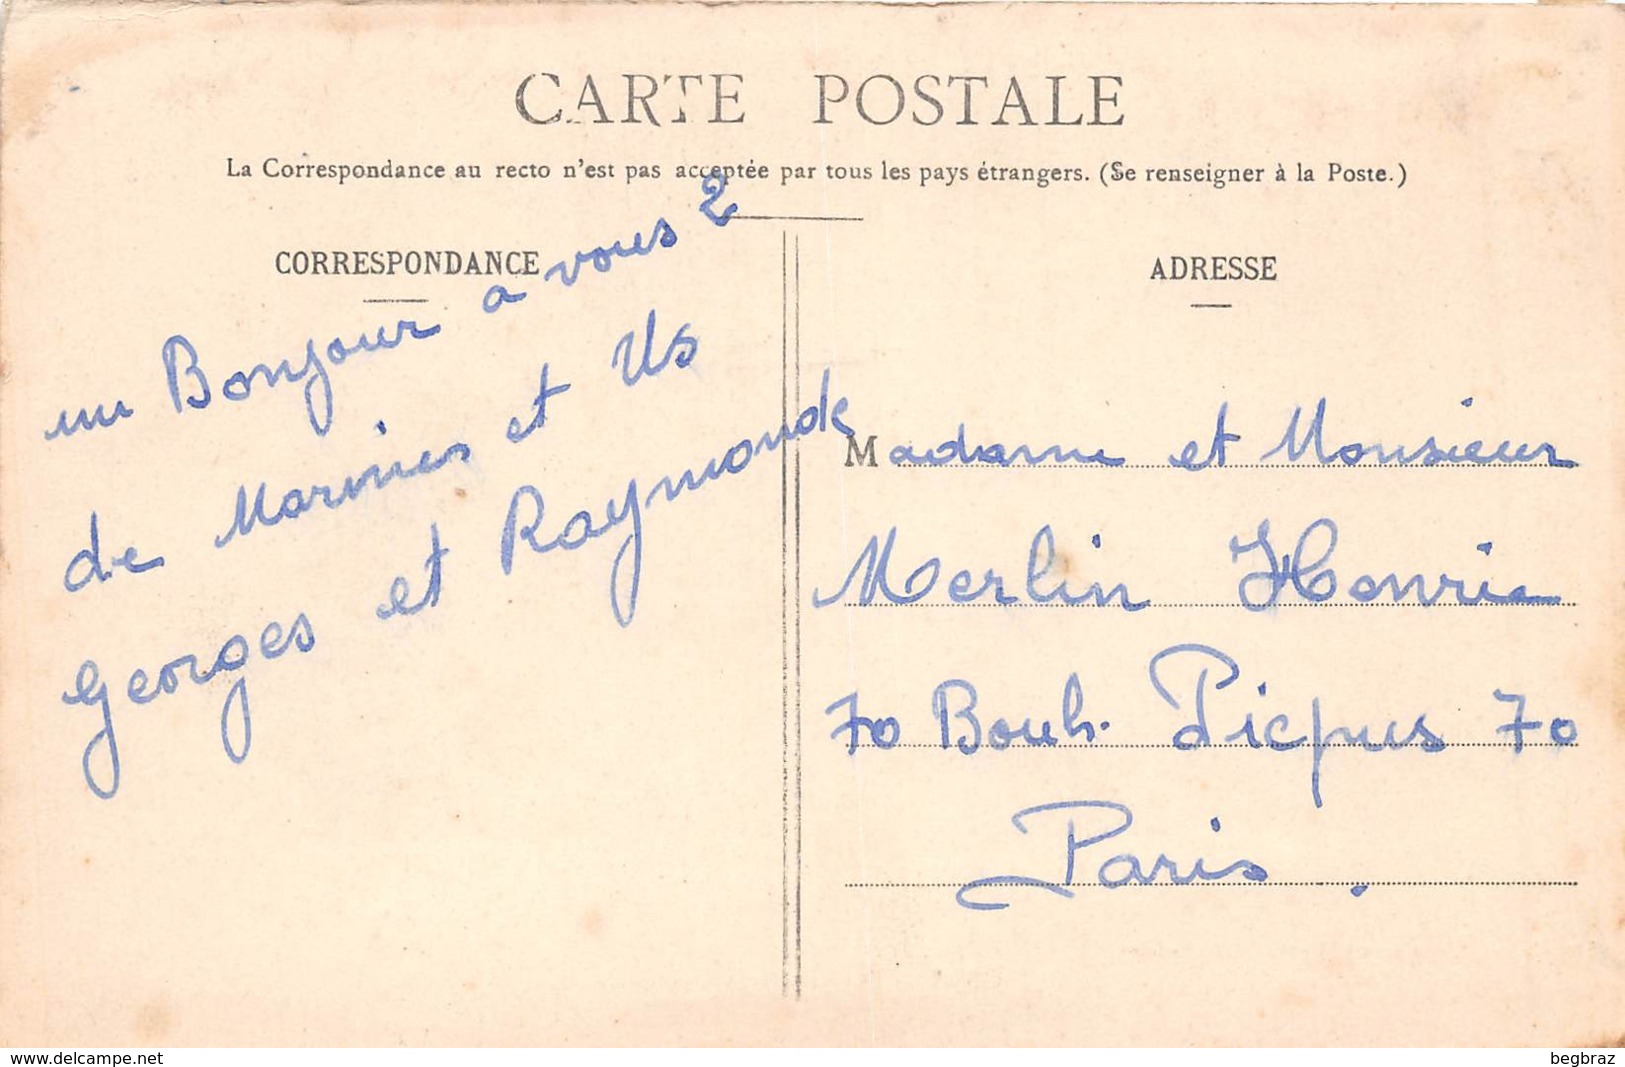 CARTE POSTALE
La Correspondance au recto n'est pas acceptée par tous les pays étrangers. (Se renseigner à la Poste.)
CORRESPONDANCE
un Bonjour a vous 2
de Marines et Us
Georges et Raymonde
ADRESSE
Madame et Monsieur
Merlin Henrie
70 Boulv. Picpus 70
Paris.
www.delcampe.net
begbraz